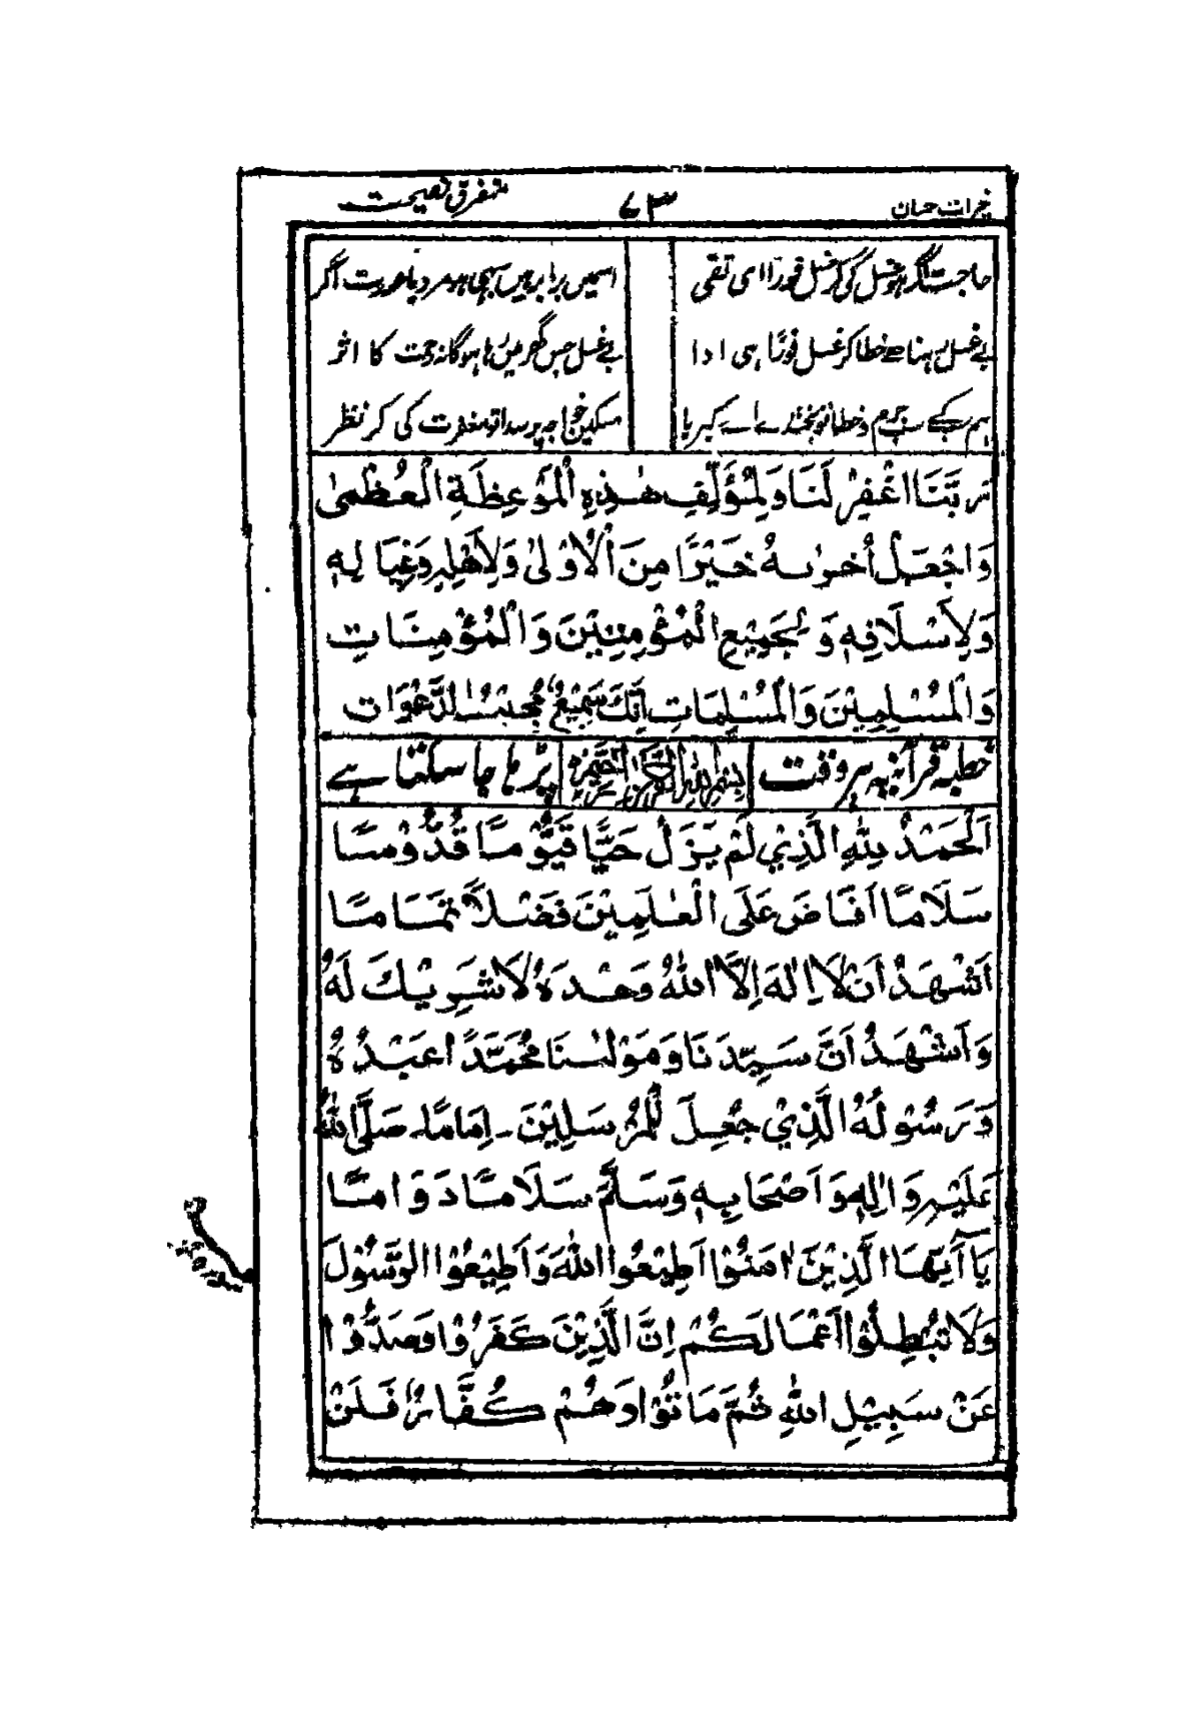 خیرات حسان ۷۳ متفرق نصیحت
حاجت اگر ہو غسل کی کر غسل فوراً ای تقی اسمیں برابر ہیں سبھی ہو مرد یا عورت اگر
بے غسل رہنا ہے خطا کر غسل فوراً ہی ادا بے غسل جس گھر میں رہا ہوگا نہ رحمت کا اثر
ہم سب کے سب جرم و خطا تو بخشدے اے کبریا مسکین خواجہ پر سدا تو مغفرت کی کر نظر
رَبَّنَا اغْفِرْ لَنَا وَلِمُؤَلِّفِ هٰذِهِ الْمَوْعِظَةِ الْعُظْمٰى
وَاجْعَلْ أُخْرٰىهُ خَيْرًا مِنَ الْأُوْلٰى وَلِأَهْلِهٖ وَعِيَالِهٖ
وَلِأَسْلَافِهٖ وَلِجَمِيْعِ الْمُؤْمِنِيْنَ وَالْمُؤْمِنَاتِ
وَالْمُسْلِمِيْنَ وَالْمُسْلِمَاتِ إِنَّكَ سَمِيْعٌ مُجِيْبُ الدَّعْوَات
خطبہ قرآنیہ ہر وقت بِسْمِ اللهِ الرَّحْمٰنِ الرَّحِيْمِ پڑھا جا سکتا ہے
اَلْحَمْدُ لِلّٰهِ الَّذِيْ لَمْ يَزَلْ حَيًّا قَيُّوْمًا قُدُّوْسًا
سَلَامًا اَفَاضَ عَلَى الْعٰلَمِيْنَ فَضْلًا تَمَامًا
اَشْهَدُ اَنْ لَا اِلٰهَ اِلَّا اللهُ وَحْدَهُ لَا شَرِيْكَ لَهُ
وَاَشْهَدُ اَنَّ سَيِّدَنَا وَمَوْلٰنَا مُحَمَّدًا عَبْدُهُ
وَرَسُوْلُهُ الَّذِيْ جُعِلَ لِلْمُرْسَلِيْنَ اِمَامًا صَلَّى اللهُ
عَلَيْهِ وَاٰلِهٖ وَاَصْحَابِهٖ وَسَلَّمَ سَلَامًا دَوَامًا
يَآ اَيُّهَا الَّذِيْنَ اٰمَنُوْا اَطِيْعُوا اللهَ وَاَطِيْعُوا الرَّسُوْلَ
وَلَا تُبْطِلُوْا اَعْمَالَكُمْ اِنَّ الَّذِيْنَ كَفَرُوْا وَصَدُّوْا
عَنْ سَبِيْلِ اللهِ ثُمَّ مَاتُوْا وَهُمْ كُفَّارٌ فَلَنْ